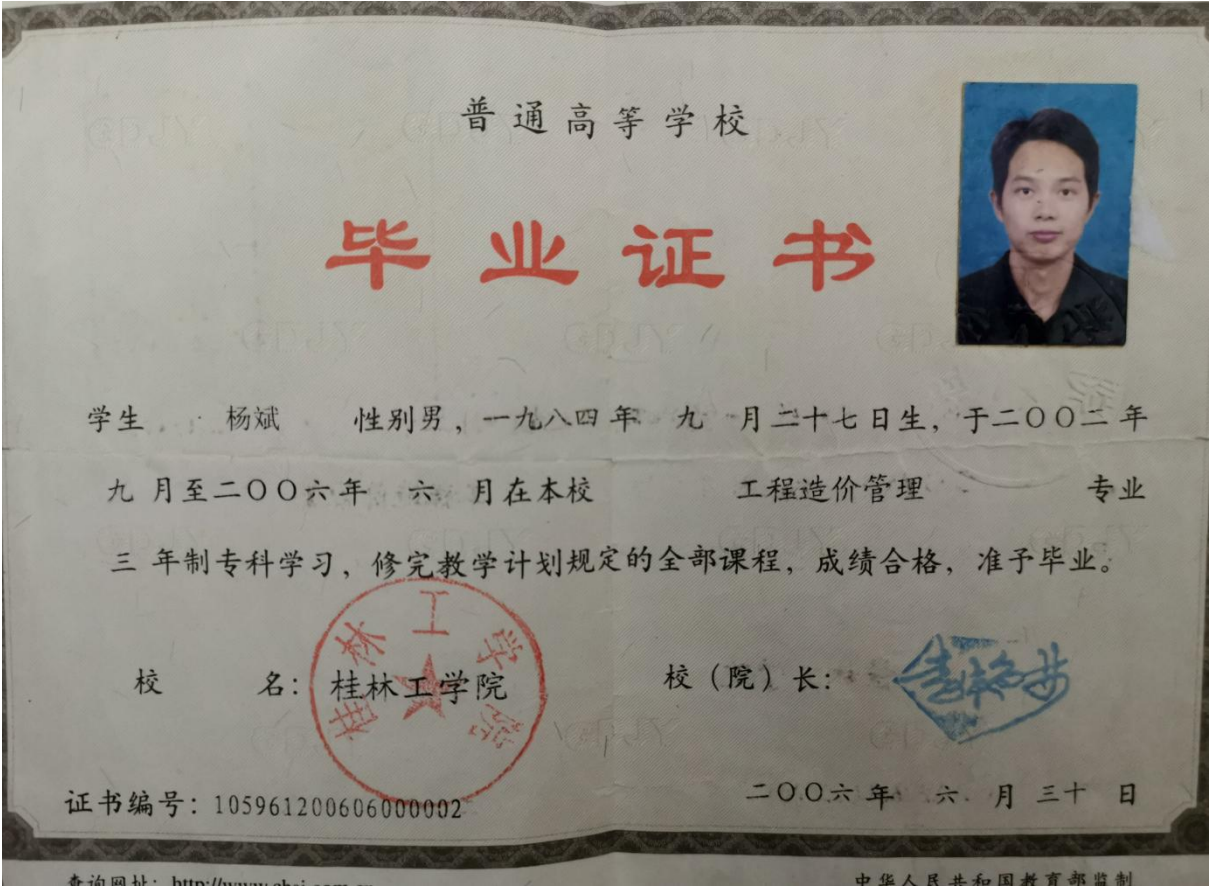 普通高等学校
毕业证书
学生 杨斌 性别男，一九八四年 九 月二十七日生，于二〇〇二年
九 月至二〇〇六年 六 月在本校 工程造价管理 专业
三 年制专科学习，修完教学计划规定的全部课程，成绩合格，准予毕业。
桂林工学院
校 名：桂林工学院 校（院）长：
证书编号：105961200606000002 二〇〇六年 六 月 三十 日
查询网址：http://www.chsi.com.cn 中华人民共和国教育部监制